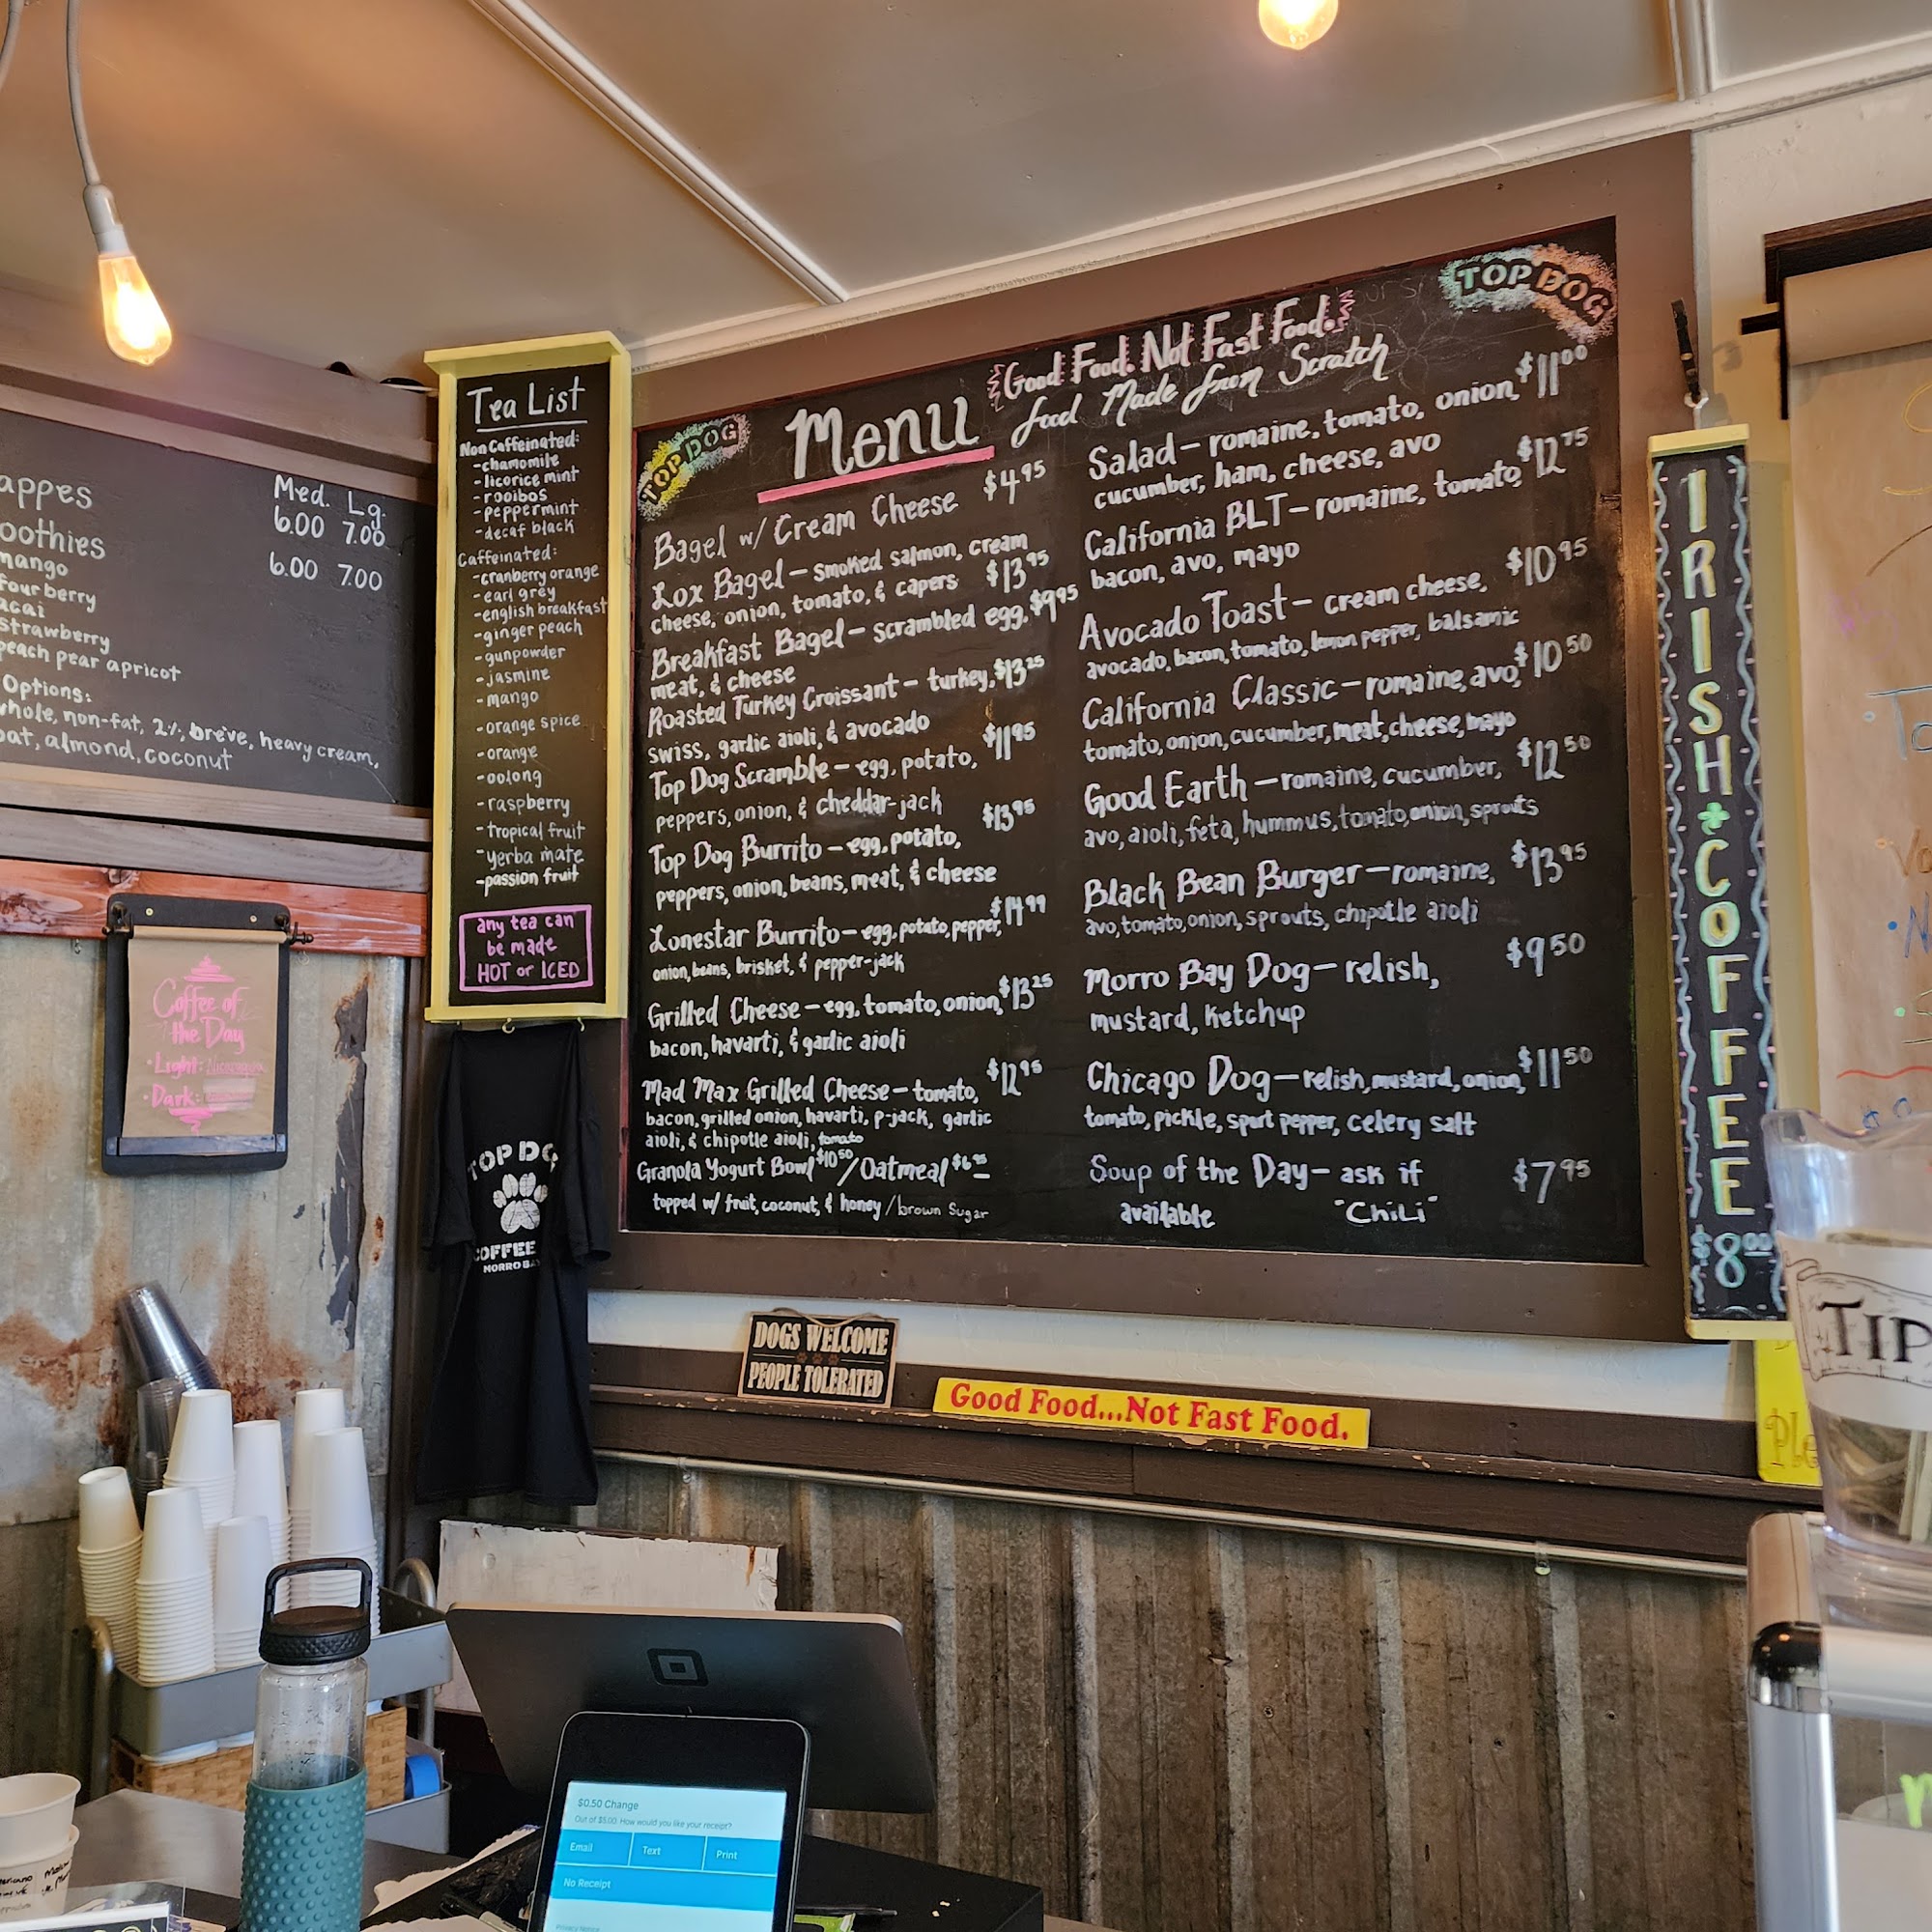 appes
Med. Lg.
6.00 7.00
oothies
6.00 7.00
mango
four berry
acai
strawberry
peach pear apricot
Options:
whole, non-fat, 2%, breve, heavy cream,
oat, almond, coconut
Coffee of
the Day
• Light:
• Dark:
Tea List
Non Caffeinated:
- chamomile
- licorice mint
- rooibos
- peppermint
- decaf black
Caffeinated:
- cranberry orange
- earl grey
- english breakfast
- ginger peach
- gunpowder
- jasmine
- mango
- orange spice
- orange
- oolong
- raspberry
- tropical fruit
- yerba mate
- passion fruit
any tea can
be made
HOT or ICED
TOP DOG
Menu
Good Food. Not Fast Food.
food Made from Scratch
TOP DOG
Bagel w/ Cream Cheese $4.95
Lox Bagel - smoked salmon, cream
cheese, onion, tomato, & capers $13.95
Breakfast Bagel - scrambled egg, $9.95
meat, & cheese
Roasted Turkey Croissant - turkey, $13.25
swiss, garlic aioli, & avocado
Top Dog Scramble - egg, potato, $11.95
peppers, onion, & cheddar-jack
Top Dog Burrito - egg, potato, $13.95
peppers, onion, beans, meat, & cheese
Lonestar Burrito - egg, potato, pepper, $14.99
onion, beans, brisket, & pepper-jack
Grilled Cheese - egg, tomato, onion, $13.25
bacon, havarti, & garlic aioli
Mad Max Grilled Cheese - tomato, $12.95
bacon, grilled onion, havarti, p-jack, garlic
aioli, & chipotle aioli, tomato
Granola Yogurt Bowl $10.50 / Oatmeal $6.95
topped w/ fruit, coconut, & honey / brown sugar
Salad - romaine, tomato, onion, $11.00
cucumber, ham, cheese, avo
California BLT - romaine, tomato, $12.75
bacon, avo, mayo
Avocado Toast - cream cheese, $10.95
avocado, bacon, tomato, lemon pepper, balsamic
California Classic - romaine, avo, $10.50
tomato, onion, cucumber, meat, cheese, mayo
Good Earth - romaine, cucumber, $12.50
avo, aioli, feta, hummus, tomato, onion, sprouts
Black Bean Burger - romaine, $13.95
avo, tomato, onion, sprouts, chipotle aioli
Morro Bay Dog - relish, $9.50
mustard, ketchup
Chicago Dog - relish, mustard, onion, $11.50
tomato, pickle, sport pepper, celery salt
Soup of the Day - ask if $7.95
available "Chili"
IRISH COFFEE
$8.00
TOP DO
COFFEE
MORRO BAY
DOGS WELCOME
PEOPLE TOLERATED
Good Food...Not Fast Food.
TIP
Ple
$0.50 Change
Out of $5.00. How would you like your receipt?
Email Text Print
No Receipt
Privacy Notice